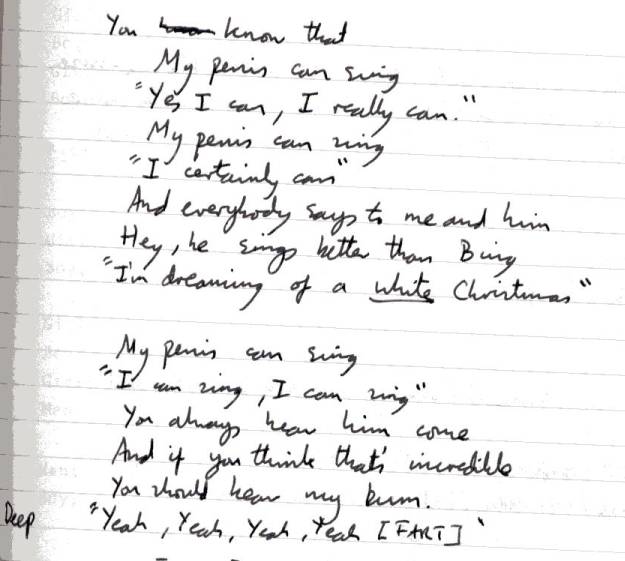 You know that
My penis can sing
"Yes I can, I really can."
My penis can sing
"I certainly can"
And everybody says to me and him
Hey, he sings better than Bing
"I'm dreaming of a white Christmas"
My penis can sing
"I can sing, I can sing"
You always hear him come
And if you think that's incredible
You should hear my bum.
Deep "Yeah, Yeah, Yeah, Yeah [FART]"